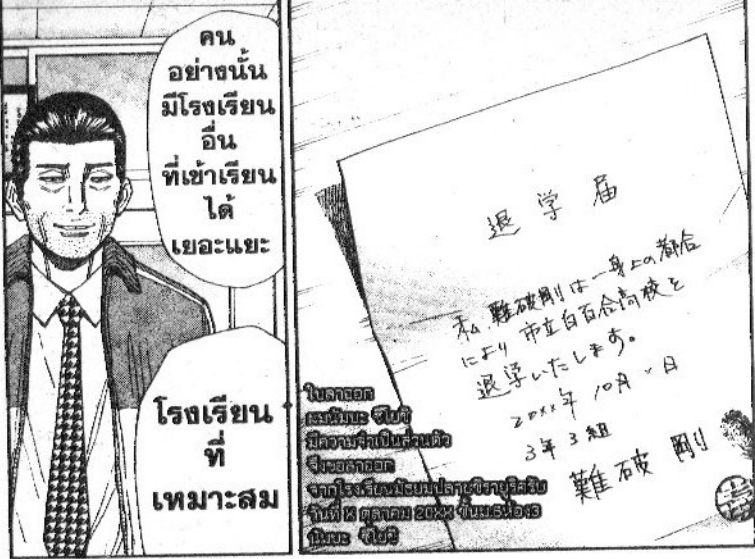 คน
อย่างนั้น
มีโรงเรียน
อื่น
ที่เข้าเรียน
ได้
เยอะแยะ
โรงเรียน
ที่
เหมาะสม
退学届
私、難破剛は一身上の都合
により市立白百合高校を
退学いたします。
20××年 10月×日
3年3組
難破 剛
ใบลาออก
ผมนัมบะ ซึโยชิ
มีความจำเป็นส่วนตัว
จึงขอลาออก
จากโรงเรียนมัธยมปลายชิรายูริครับ
วันที่ X ตุลาคม 20XX ชั้นม.6ห้อง3
นัมบะ ซึโยชิ